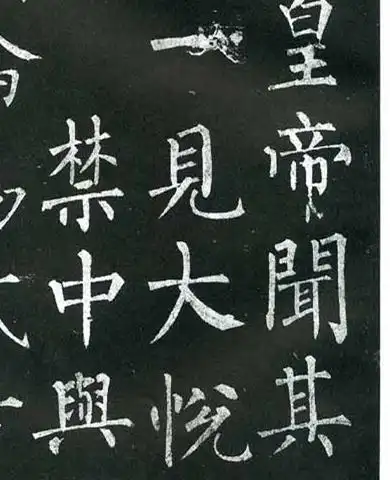 皇帝聞其
一見大悅
禁中與